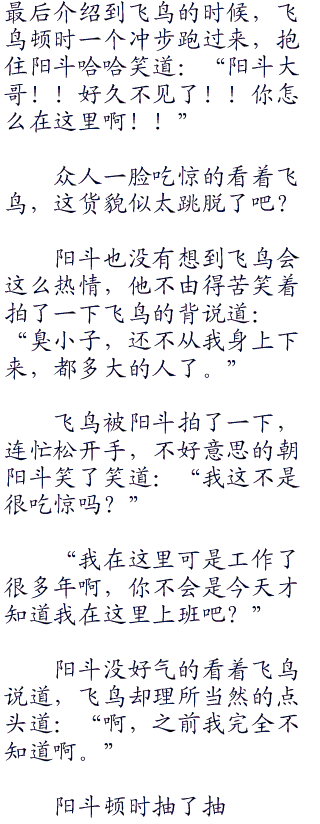 最后介绍到飞鸟的时候，飞
鸟顿时一个冲步跑过来，抱
住阳斗哈哈笑道：“阳斗大
哥！！好久不见了！！你怎
么在这里啊！！”
众人一脸吃惊的看着飞
鸟，这货貌似太跳脱了吧？
阳斗也没有想到飞鸟会
这么热情，他不由得苦笑着
拍了一下飞鸟的背说道：
“臭小子，还不从我身上下
来，都多大的人了。”
飞鸟被阳斗拍了一下，
连忙松开手，不好意思的朝
阳斗笑了笑道：“我这不是
很吃惊吗？”
“我在这里可是工作了
很多年啊，你不会是今天才
知道我在这里上班吧？”
阳斗没好气的看着飞鸟
说道，飞鸟却理所当然的点
头道：“啊，之前我完全不
知道啊。”
阳斗顿时抽了抽